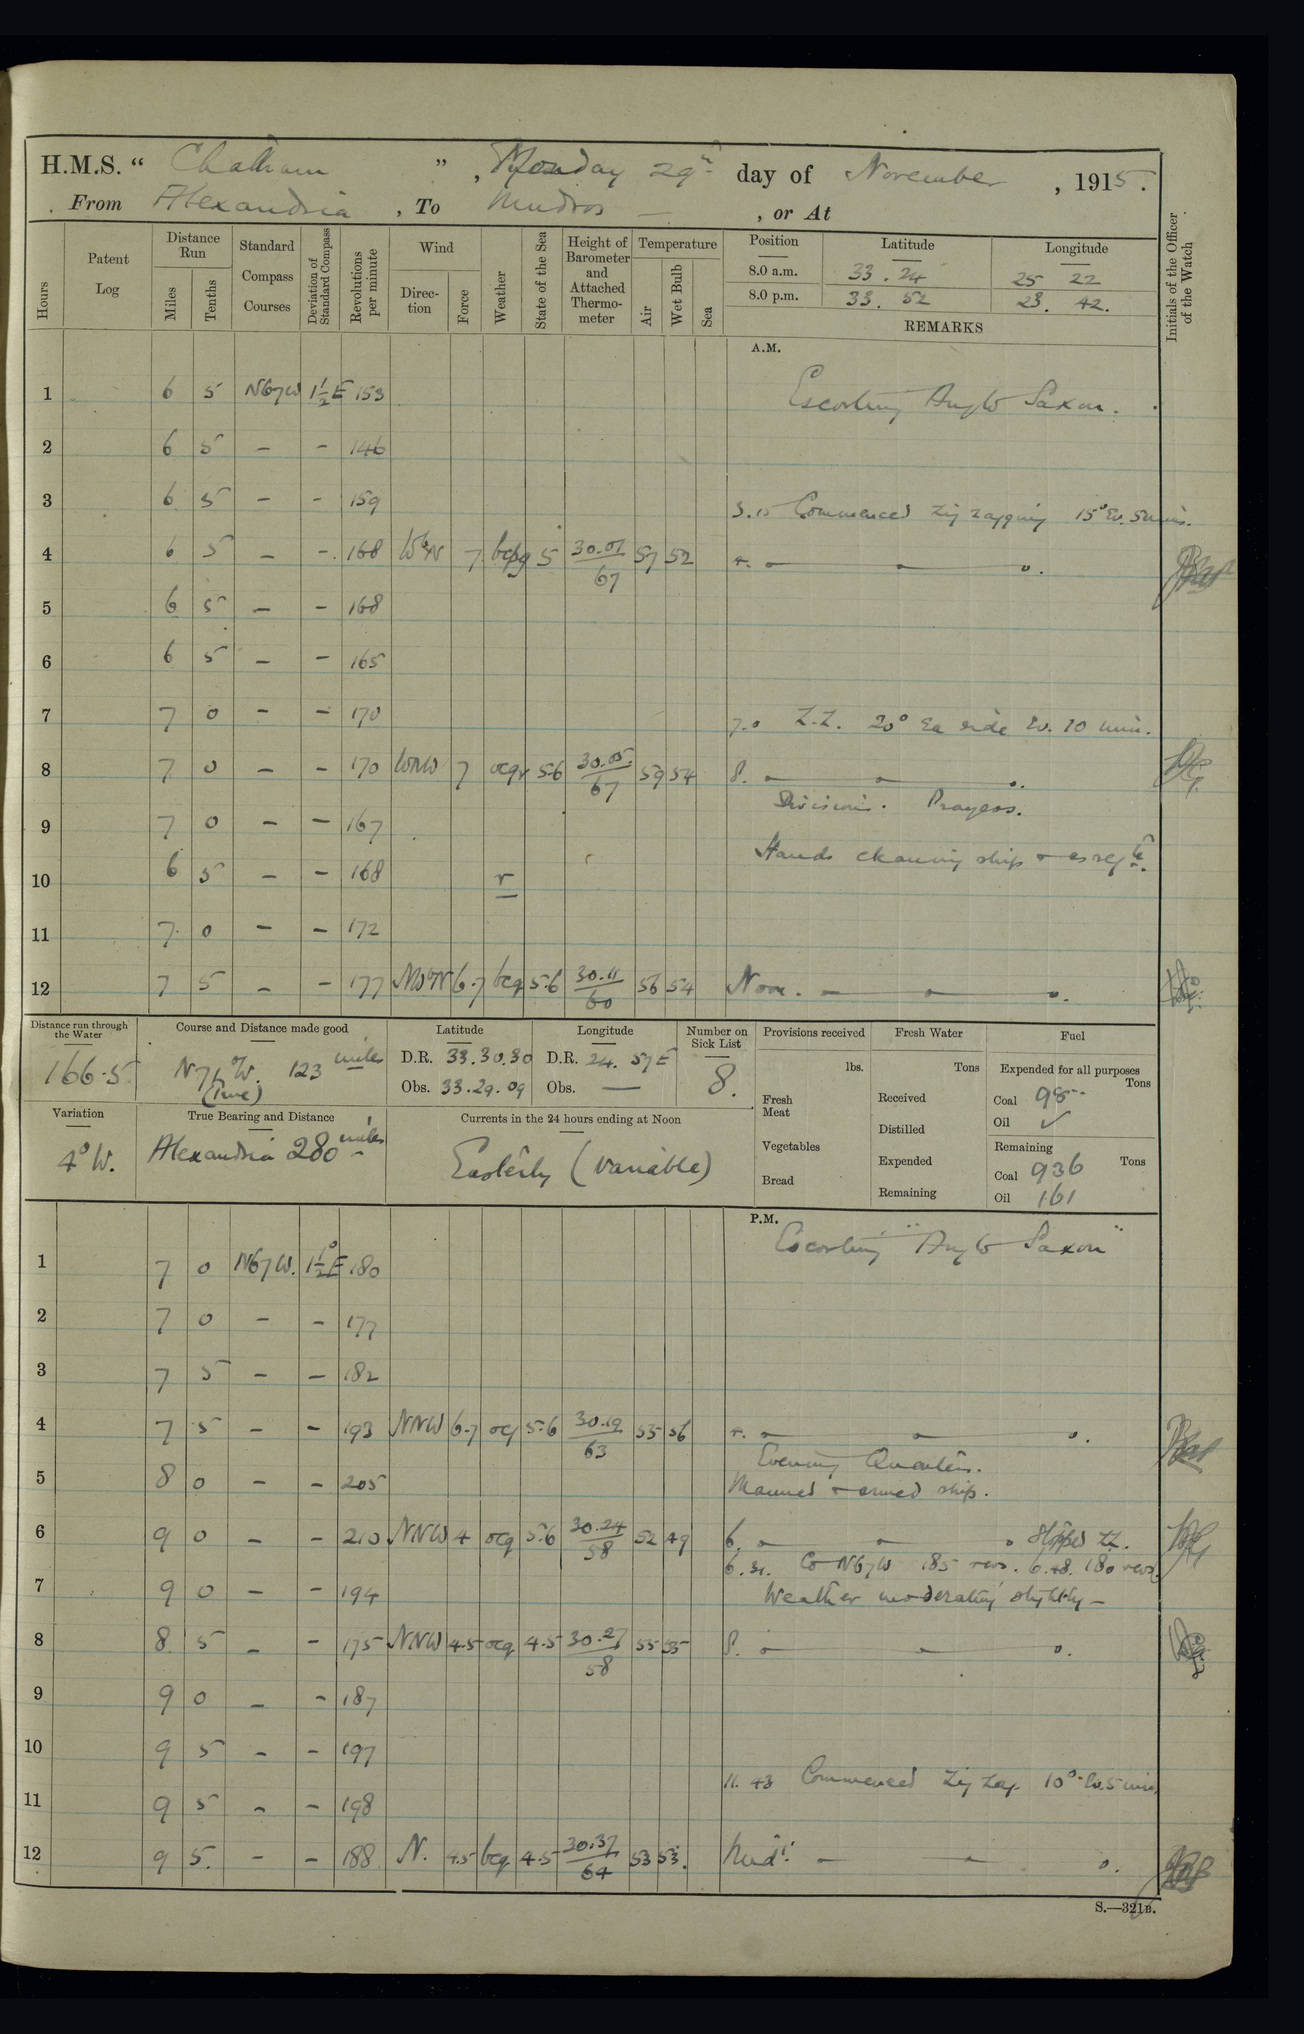 H.M.S. “ Chatham ”, Monday 29th day of November, 1915.
From Alexandria, To Mudros — , or At
Hours
Patent Log
Distance Run
Miles
Tenths
Standard Compass Courses
Deviation of Standard Compass
Revolutions per minute
Wind
Direction
Force
Weather
State of the Sea
Height of Barometer and Attached Thermometer
Temperature
Air
Wet Bulb
Sea
Position Latitude Longitude
8.0 a.m. 33. 24 25 22
8.0 p.m. 33. 52 23. 42.
REMARKS
Initials of the Officer of the Watch
A.M.
1 6 5 N67W 1½E 153 Escorting Anglo Saxon.
2 6 5 – – 146
3 6 5 – – 159
3.15 Commenced zig zagging 15° Ev. 5 mins.
4 6 5 – – 168 WbN 7 bcpq 5 30.01/67 57 52 4.
5 6 5 – – 168
6 6 5 – – 165
7 7 0 – – 170 7.0 Z.Z. 20° Ea side Ev. 10 min.
8 7 0 – – 170 WNW 7 ocqr 5.6 30.05/67 59 54 8.
Divisions. Prayers.
9 7 0 – – 167
Hands cleaning ship & as reqte.
10 6 5 – – 168 r
11 7 0 – – 172
12 7 5 – – 177 NWbN 6.7 bcq 5.6 30.11/60 56 54 Noon.
Distance run through the Water
166.5
Course and Distance made good
N71°W. 123 miles
(True)
Latitude
D.R. 33.30.30
Obs. 33.29.09
Longitude
D.R. 24. 57 E
Obs. —
Number on Sick List
8.
Provisions received
lbs.
Fresh Meat
Vegetables
Bread
Fresh Water
Tons
Received
Distilled
Expended
Remaining
Fuel
Expended for all purposes
Tons
Coal 98
Oil ✓
Remaining
Tons
Coal 936
Oil 161
Variation
4° W.
True Bearing and Distance
Alexandria 280 miles
Currents in the 24 hours ending at Noon
Easterly (variable)
P.M.
1 7 0 N67W. 1½°E 180 Escorting "Anglo Saxon"
2 7 0 – – 177
3 7 5 – – 182
4 7 5 – – 193 NNW 6.7 oq 5.6 30.19/63 55 56 4.
Evening Quarters.
5 8 0 – – 205 Manned & armed ship.
6 9 0 – – 210 NNW 4 ocq 5.6 30.24/58 52 49 6. Stopped ZZ.
6.31. Co N67W 185 revs. 6.48. 180 revs.
7 9 0 – – 194 Weather moderating slightly –
8 8 5 – – 175 NNW 4.5 ocq 4.5 30.27/58 55 55 8.
9 9 0 – – 187
10 9 5 – – 197
11.43 Commenced Zig Zag. 10° Ev. 5 min.
11 9 5 – – 198
12 9 5. – – 188 N. 4.5 bcq 4.5 30.37/64 53 53. Midt.
S.—321B.